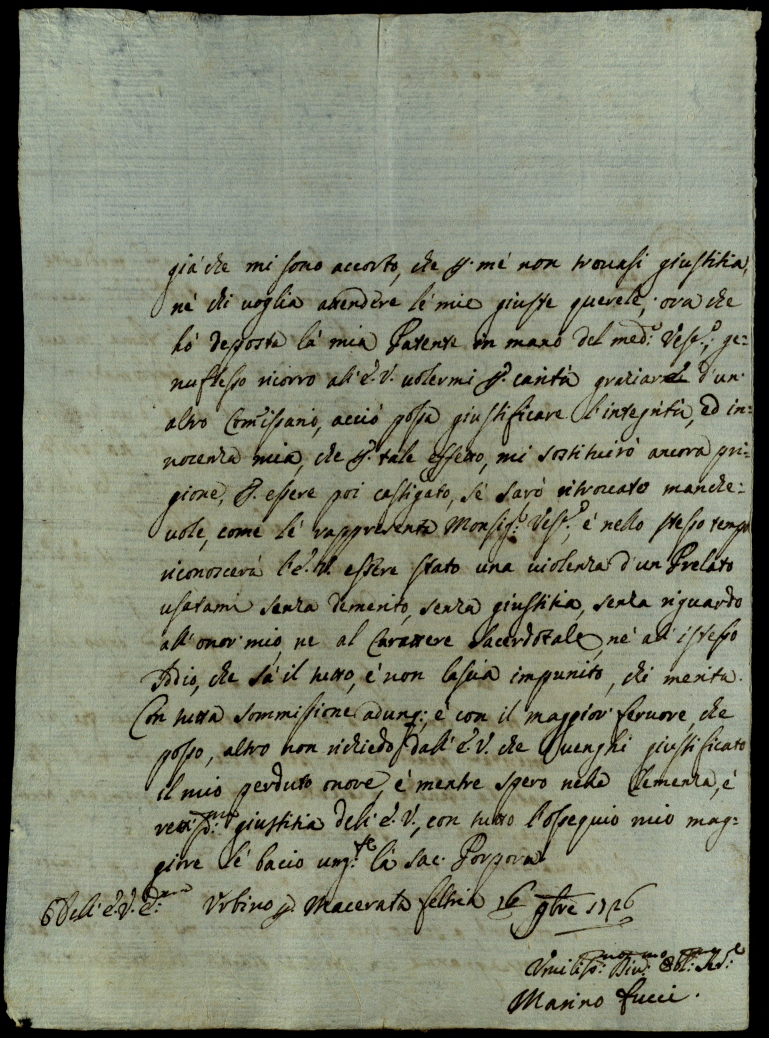 già che mi sono accorto, che p. mè non trovasi giustitia,
nè chi voglia attendere lè mie giuste querele, ora che
hò deposta là mia Patente in mano del med.o Vesc.o, ge=
nuflesso ricorro all'E.V. volermi p. carità gratiare d'un'
altro Com̃issario, acciò possa giustificare l'integrità, ed in=
nocenza mia, che p. tale effetto, mi sostituirò ancora pri=
gione, p. essere poi castigato, sè sarò ritrovato manche=
vole, come lè rappresenta Monsig.r Vesc.o, è nello stesso tempo
riconoscerà l'E.V. essere stato una violenza d'un Prelato
usatami senza demerito, senza giustitia, senza riguardo
all'onor mio, ne al Carattere Sacerdotale, nè all'istesso
Iddio, che sà il tutto, è non lascia impunito, chi merita.
Con tutta sommissione adunq;, è con il maggior fervore, che
posso, altro non richiedo dall'E.V. che venghi giustificato
il mio perduto onore, è mentre spero nella Clemenza, è
rettiss.ma giustitia dell'E.V., con tutto l'ossequio mio mag=
giore lè bacio um.te là Sac. Porpora
Dell'E.V. E.ma Urbino p. Macerata Feltria 16 9bre 1726
Umiliss.mo Div.mo Obl.mo
Marino Fucci.